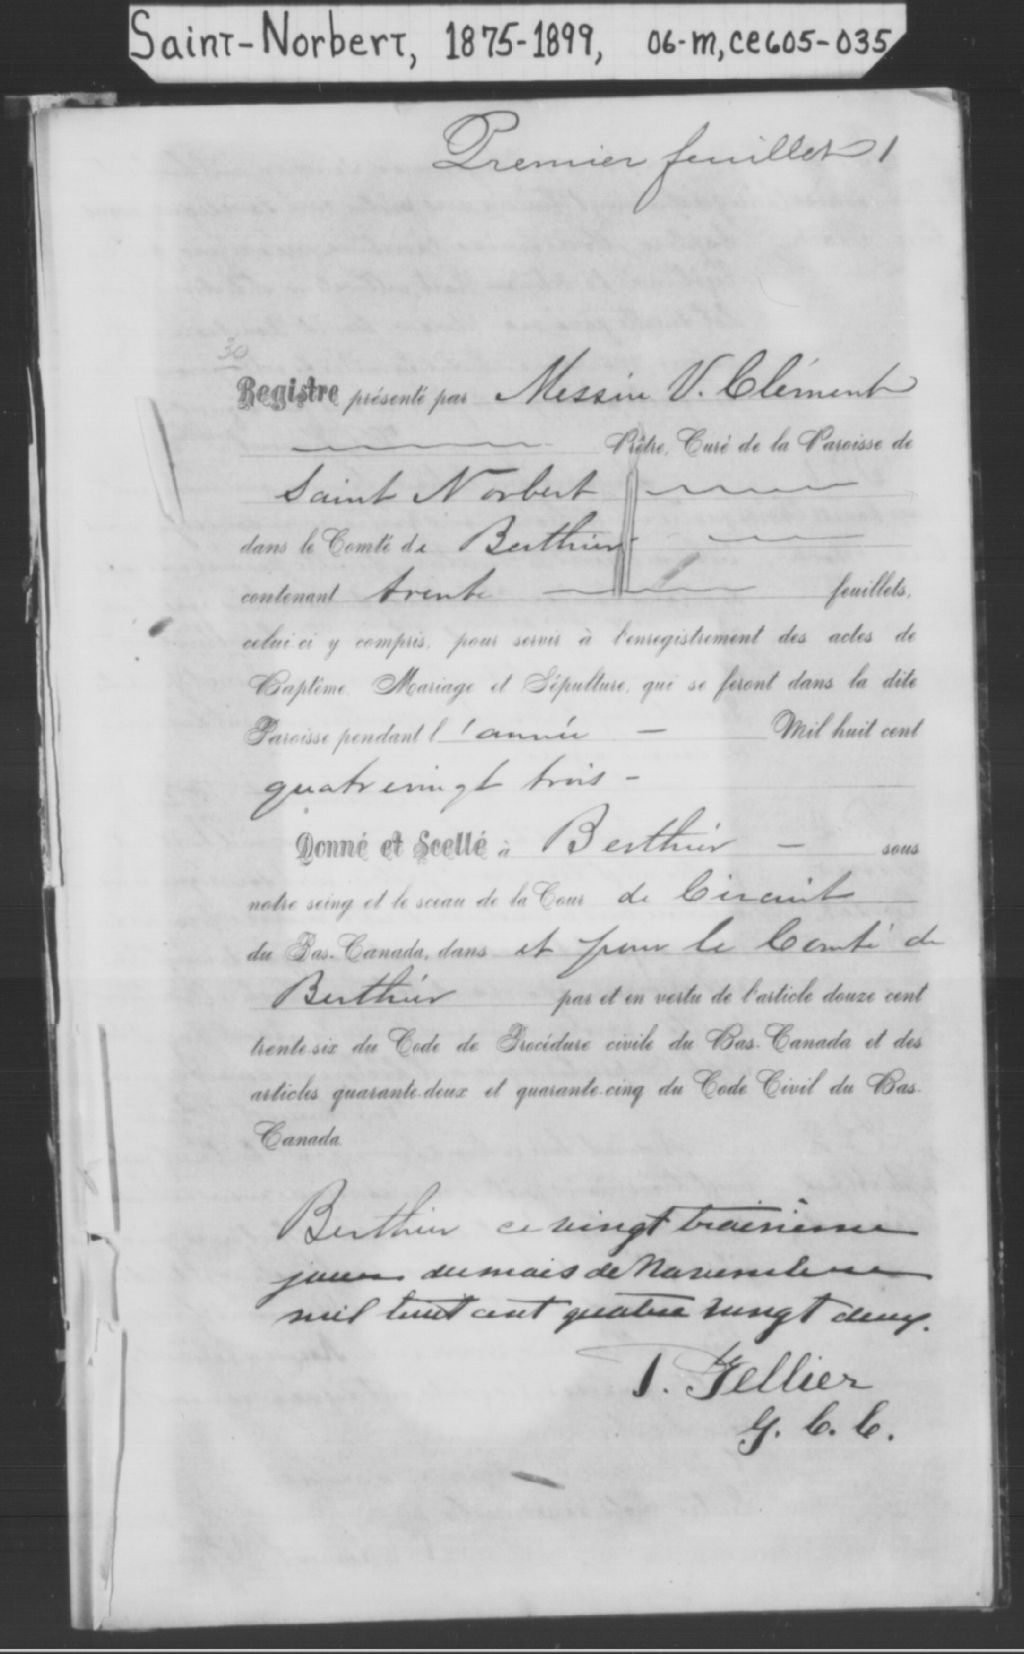 Saint-Norbert, 1875-1899, 06-M, CE605-035
Premier feuillet 1
30
Registre présenté par Messire V. Clément
Prêtre, Curé de la Paroisse de
Saint Norbert
dans le Comté de Berthier
contenant trente feuillets,
celui ci y compris, pour servir à l'enregistrement des actes de
Baptême, Mariage et Sépulture, qui se feront dans la dite
Paroisse pendant l'année — Mil huit cent
quatre vingt trois -
Donné et Scellé à Berthier — sous
notre seing et le sceau de la Cour de Circuit
du Bas-Canada, dans et pour le Comté de
Berthier par et en vertu de l'article douze cent
trente-six du Code de Procédure civile du Bas-Canada et des
articles quarante-deux et quarante-cinq du Code Civil du Bas-
Canada.
Berthier ce vingt troisième
jour du mois de Novembre
mil huit cent quatre vingt deux.
Tellier
G. C. C.